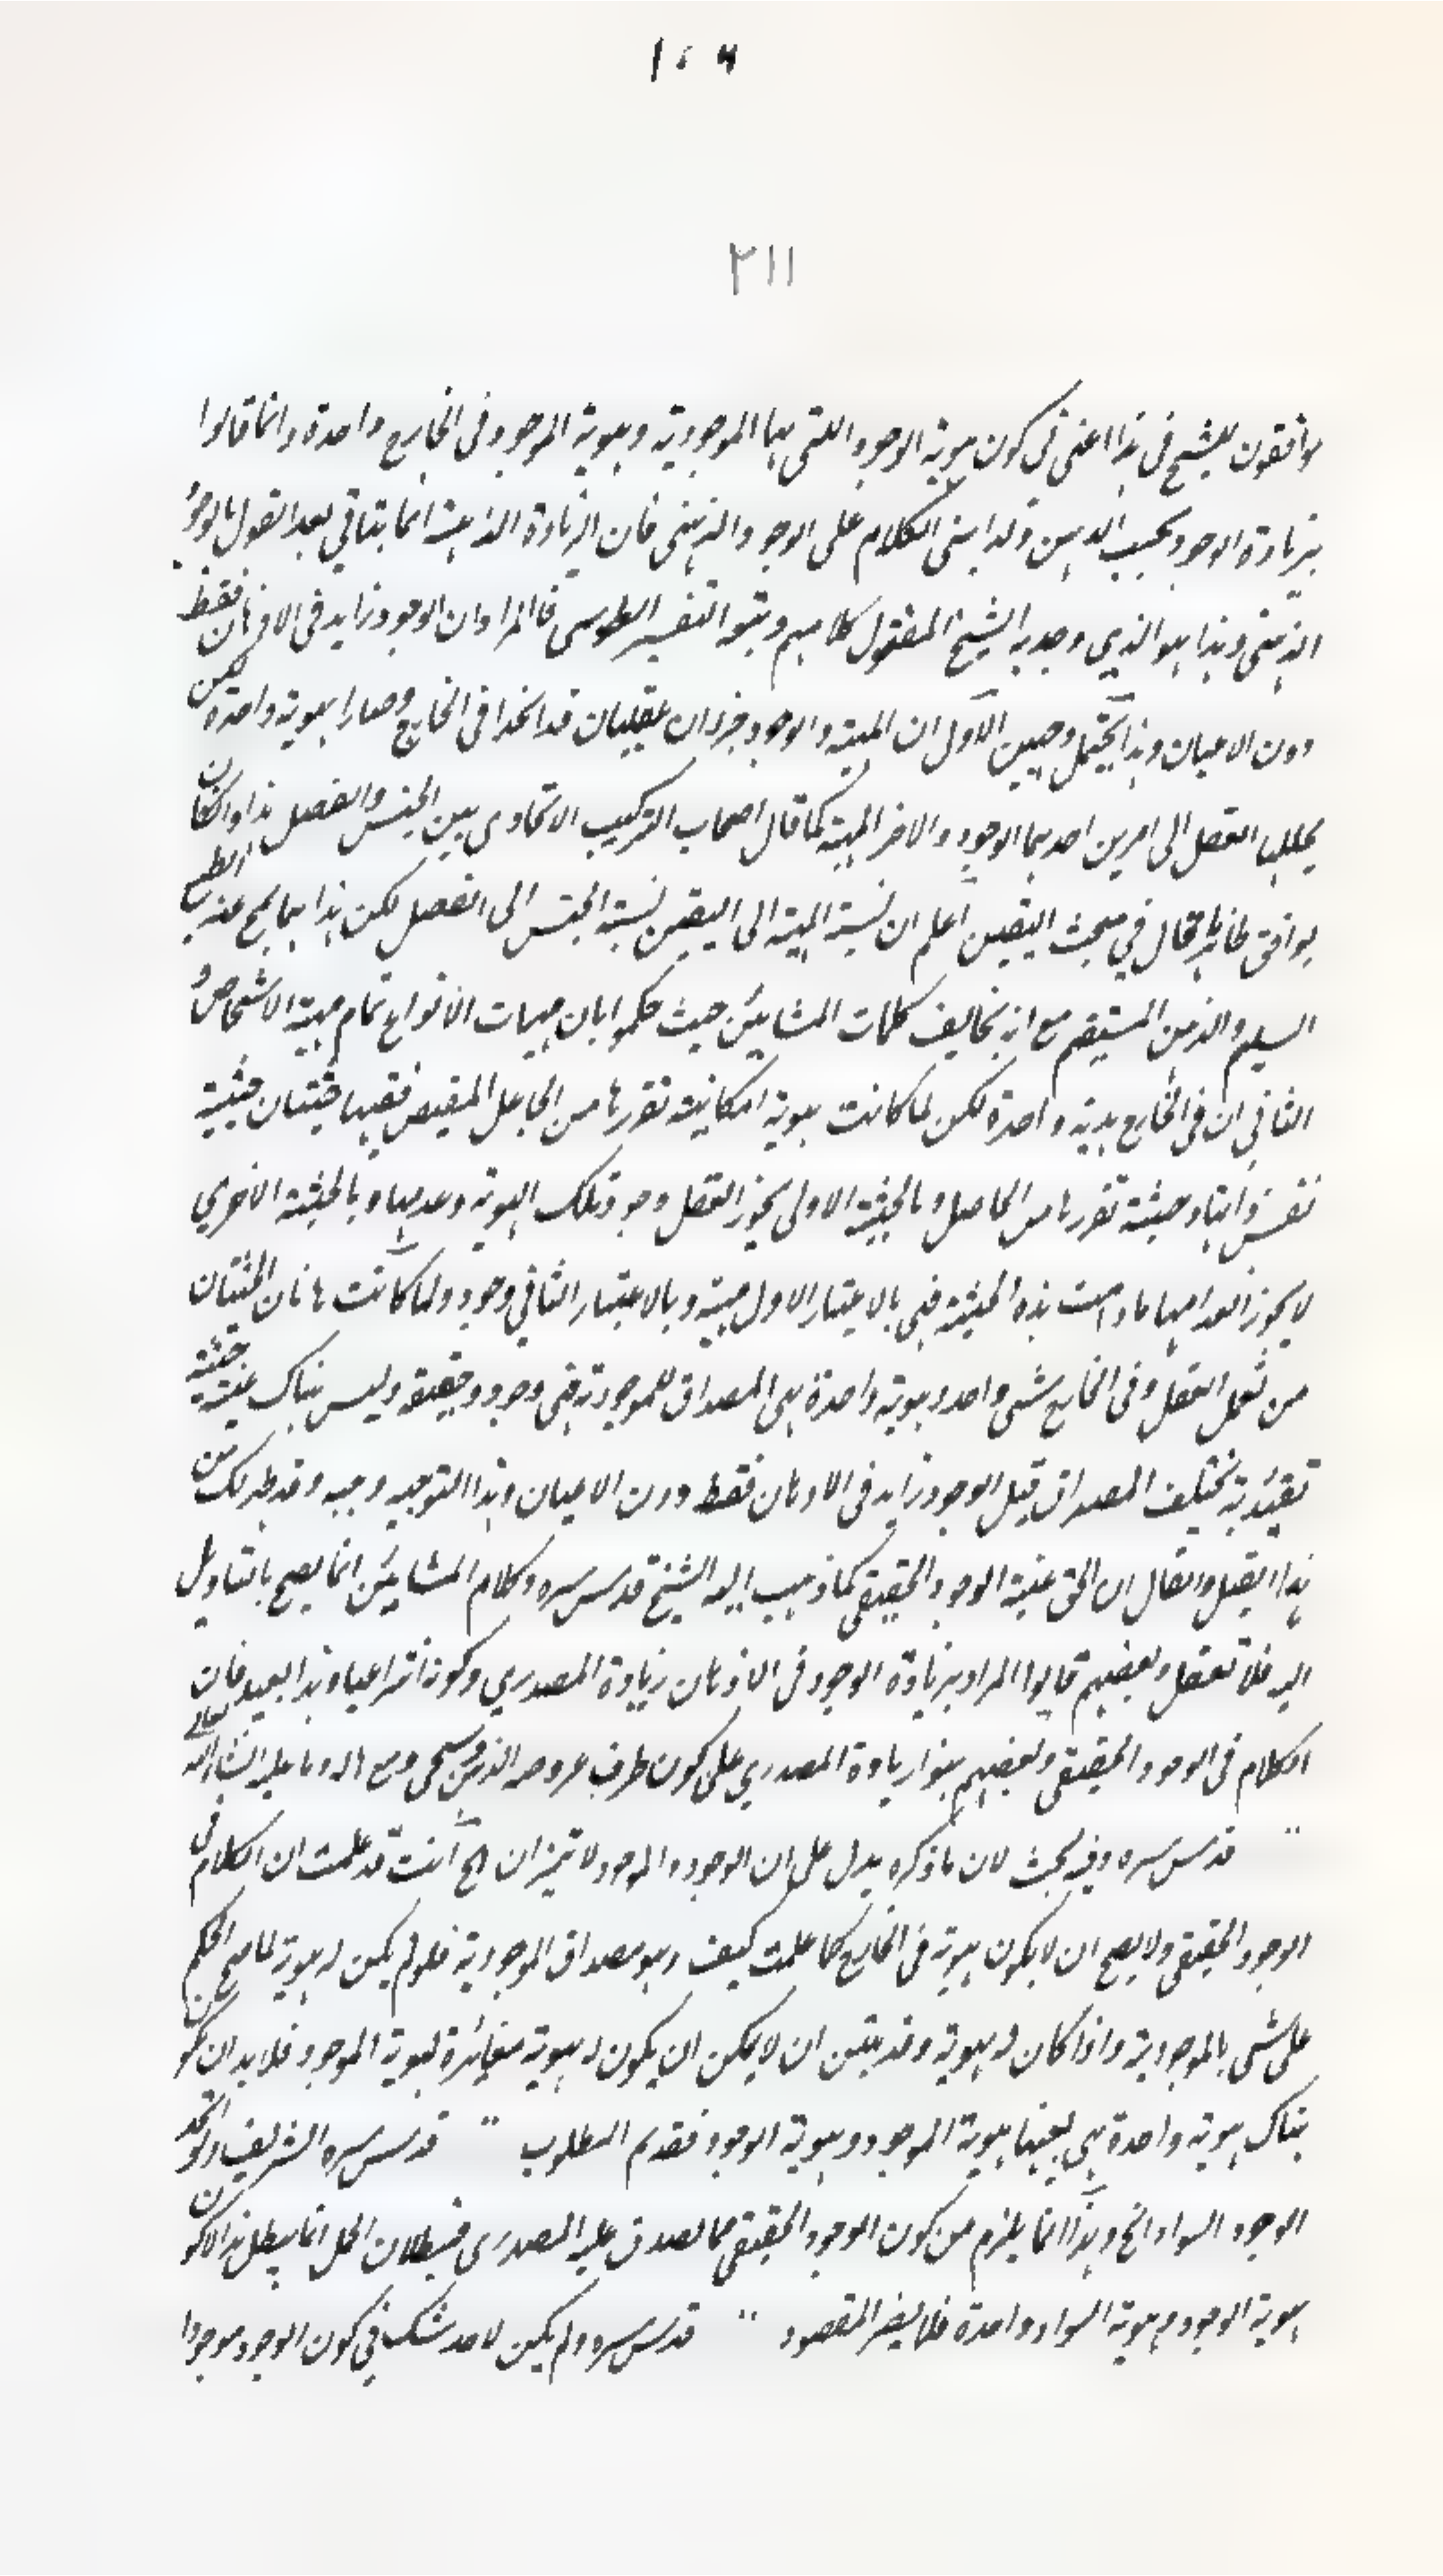 ١٠٦
٢١١
موافقون للشيخ في هذا اعني في كون هوية الوجود اللتي بها الموجودية وهوية الموجود في الخارج واحدة وانما قالوا
بزيادة الوجود بحسب الذهن ولذا بنى الكلام على الوجود الذهني فان الزيادة الذهنية انما يتاتي بعد القول بالوجود
الذهني وهذا هو الذي وجد به الشيخ المقتول كلامهم وتبعه النصير الطوسي فالمراد ان الوجود زايد في الاذهان فقط
دون الاعيان وهذا يحتمل وجهين الاول ان المهية والوجود جزءان عقليان قد اتحدا في الخارج وصارا بهوية واحدة لكن
يحللها العقل الى امرين احدهما الوجود والاخر المهية كما قال اصحاب التركيب الاتحادي بين الجنس والفصل هذا وان كان
يوافق ظاهر ما قال في مبحث التعين اعلم ان نسبة المهية الى التعين نسبة الجنس الى الفصل لكن هذا مما يمج عنه الطبع
السليم والذهن المستقيم مع انه يخالف كلمات المشايين حيث حكموا بان مهيات الانواع تمام مهية الاشخاص و
الثاني ان في الخارج هوية واحدة لكن لما كانت هوية امكانية تقررها من الجاعل المفيض ففيها حيثيتان حيثية
نفس ذاتها وحيثية تقررها من الجاعل وبالحيثية الاولى يجوز العقل وجود تلك الهوية وعدمها وبالحيثية الاخرى
لا يجوز انعدامها ما دامت هذه الحيثية فهي بالاعتبار الاول مهية وبالاعتبار الثاني وجود ولما كانت هاتان الحيثيتان
من تعمل العقل وفي الخارج شي واحد وهوية واحدة هي المصداق للموجودية فهي وجود حقيقة وليس هناك حيثية
تقييدية يختلف المصداق قيل الوجود زايد في الاذهان فقط دون الاعيان وهذا التوجيه وجيه وقد ظهر لك من
هذا القيل والقال ان الحق عينية الوجود الحقيقي كما ذهب اليه الشيخ قدس سره وكلام المشايين انما يصح بالتاويل
اليه فلا تغفل وبعضهم قالوا المراد بزيادة الوجود في الاذهان زيادة المصدري وكونه انتزاعيا وهذا بعيد فان
الكلام في الوجود الحقيقي وبعضهم بنوا زيادة المصدري على كون ظرف عروضه الذهن وسيجي مع ما له وما عليه انشاء الله تعالى
قدس سره وفيه بحث لان ما ذكره يدل على ان الوجود والموجود لا تميزان الخ انت قد علمت ان الكلام في
الوجود الحقيقي ولا يصح ان لا يكون هوية في الخارج كما علمت كيف وهو مصداق الموجودية فلو لم يكن له هوية لما صح الحكم
على شي بالموجودية واذا كان له هوية وقد تبين ان لا يمكن ان يكون له هوية مغائرة لهوية الموجود فلا بد ان يكون
هناك هوية واحدة هي بعينها هوية الموجود وهوية الوجود فقد تم المطلوب قدس سره الشريف ولو اتحد
الوجود السواد الخ وهذا انما يلزم من كون الوجود الحقيقي مما يصدق عليه المصدري فبطلان الحمل انما يبطل هذا لا كون
هوية الوجود وهوية السواد واحدة فلا يضر المقصود قدس سره ولم يكن لاحد شك في كون الوجود موجودا